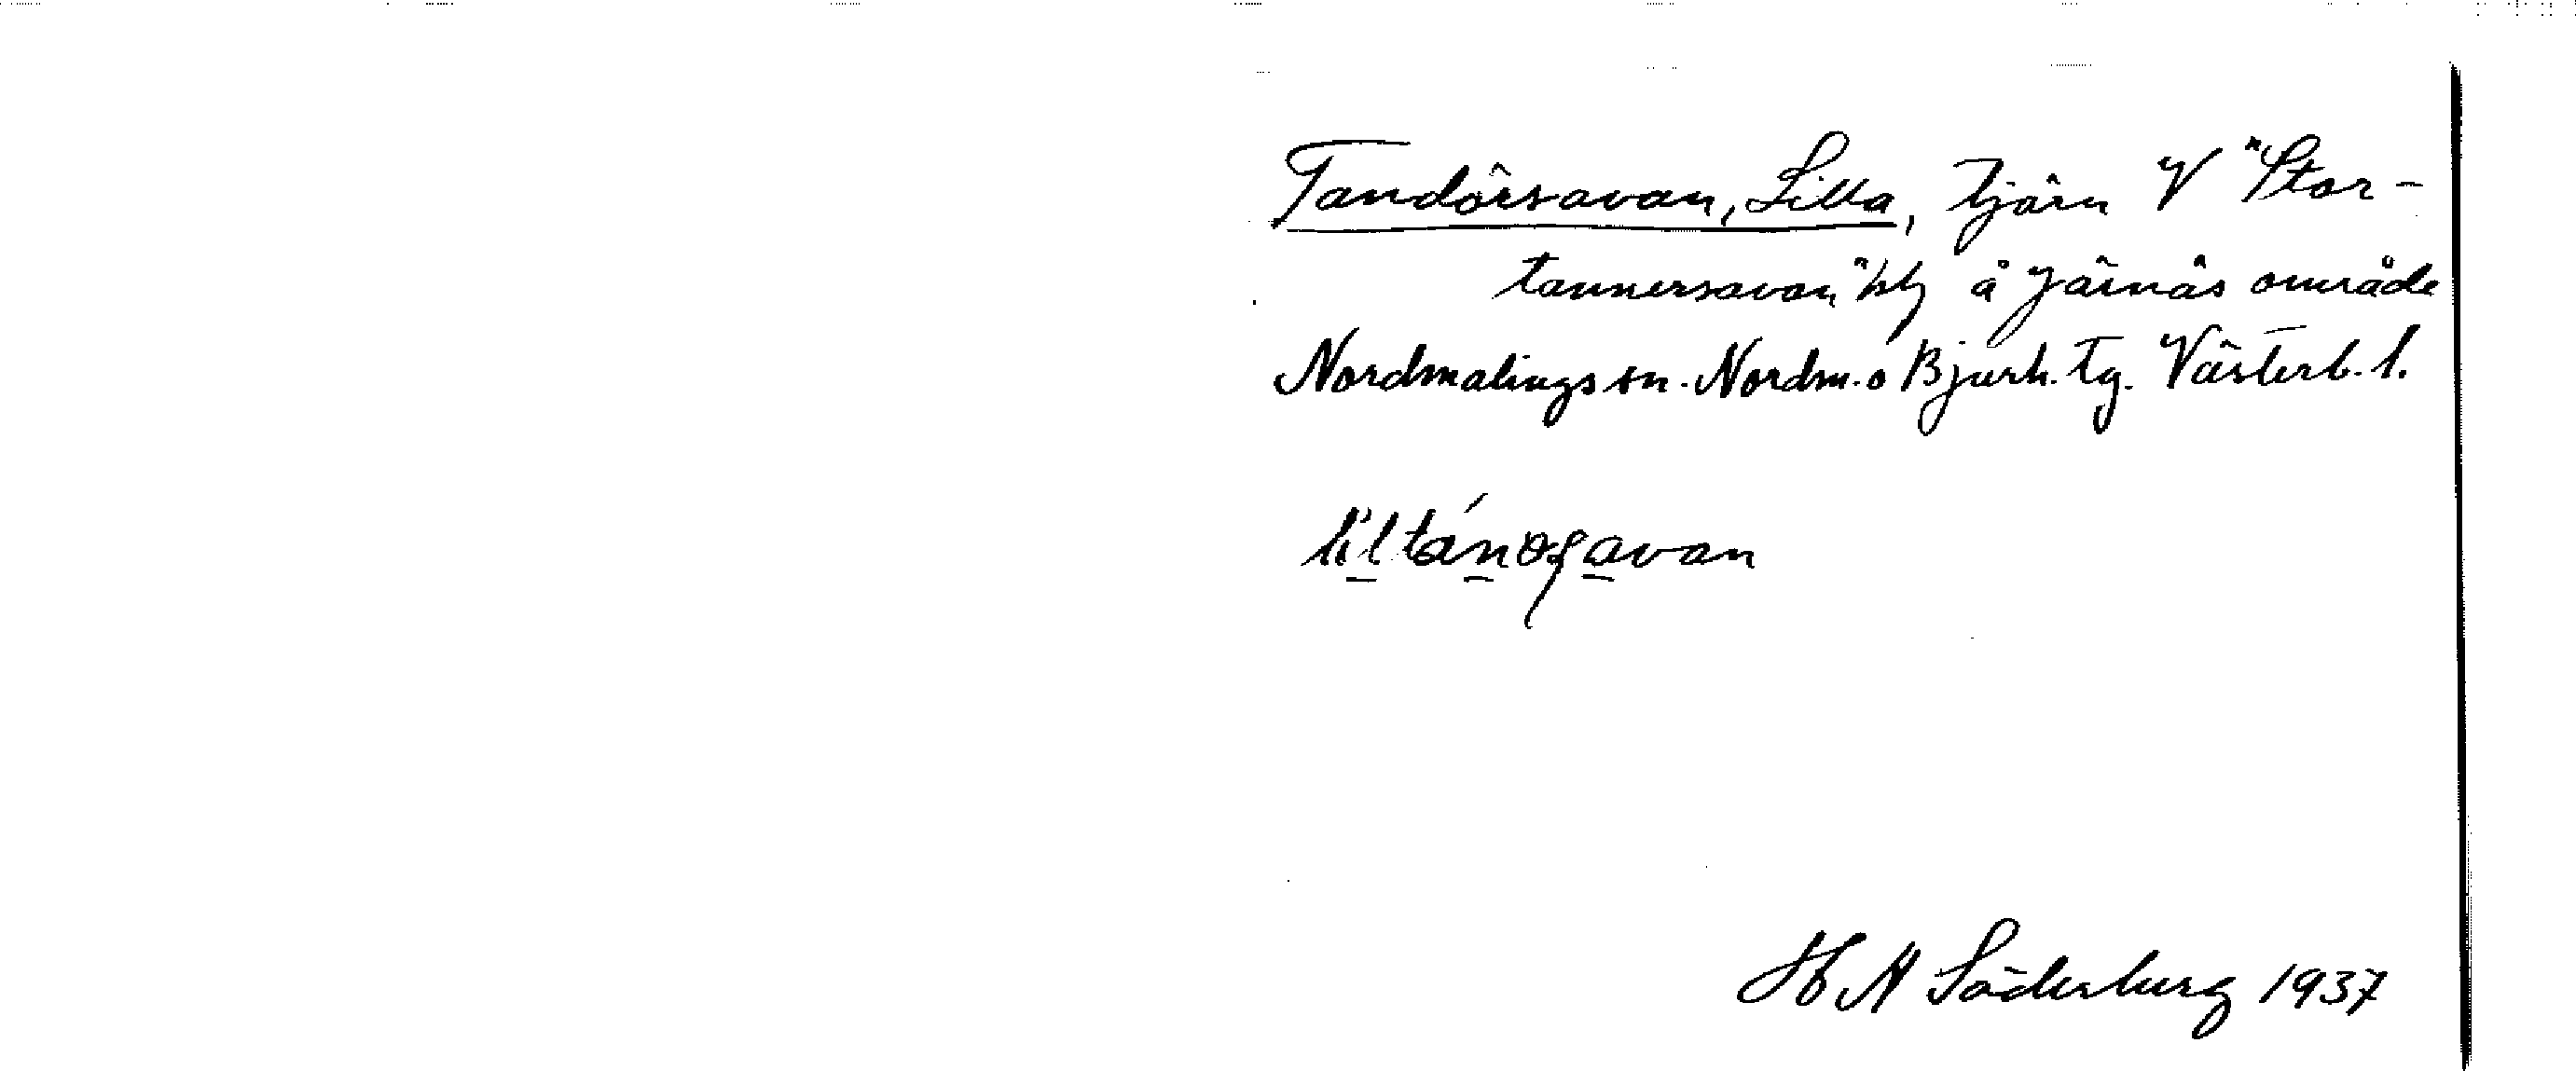 Tandörsavan, Lilla, tjärn V "Stor-
tannersavan" å Järnäs område
Nordmalings sn. Nordm. o Bjurh. tg. Västerb. l.
H N Söderberg 1937